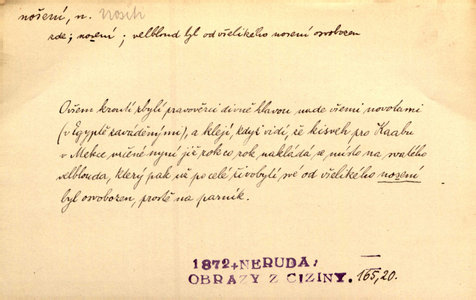 nošení, n. nositi
zde; nošení; velbloud byl od všelikého nošení osvobozen
Ovšem kroutí zbylí pravověrci divně hlavou nade všemi novotami
(v Egyptě zaváděnými), a klejí, když vidí, že kisveh pro Kaabu
v Mekce určené nyní již rok co rok nakládá se, místo na svatého
velblouda, který pak už po celé živobytí své od všelikého nošení
byl osvobozen, prostě na parník.
1872+NERUDA:
OBRAZY Z CIZINY. 165,20.